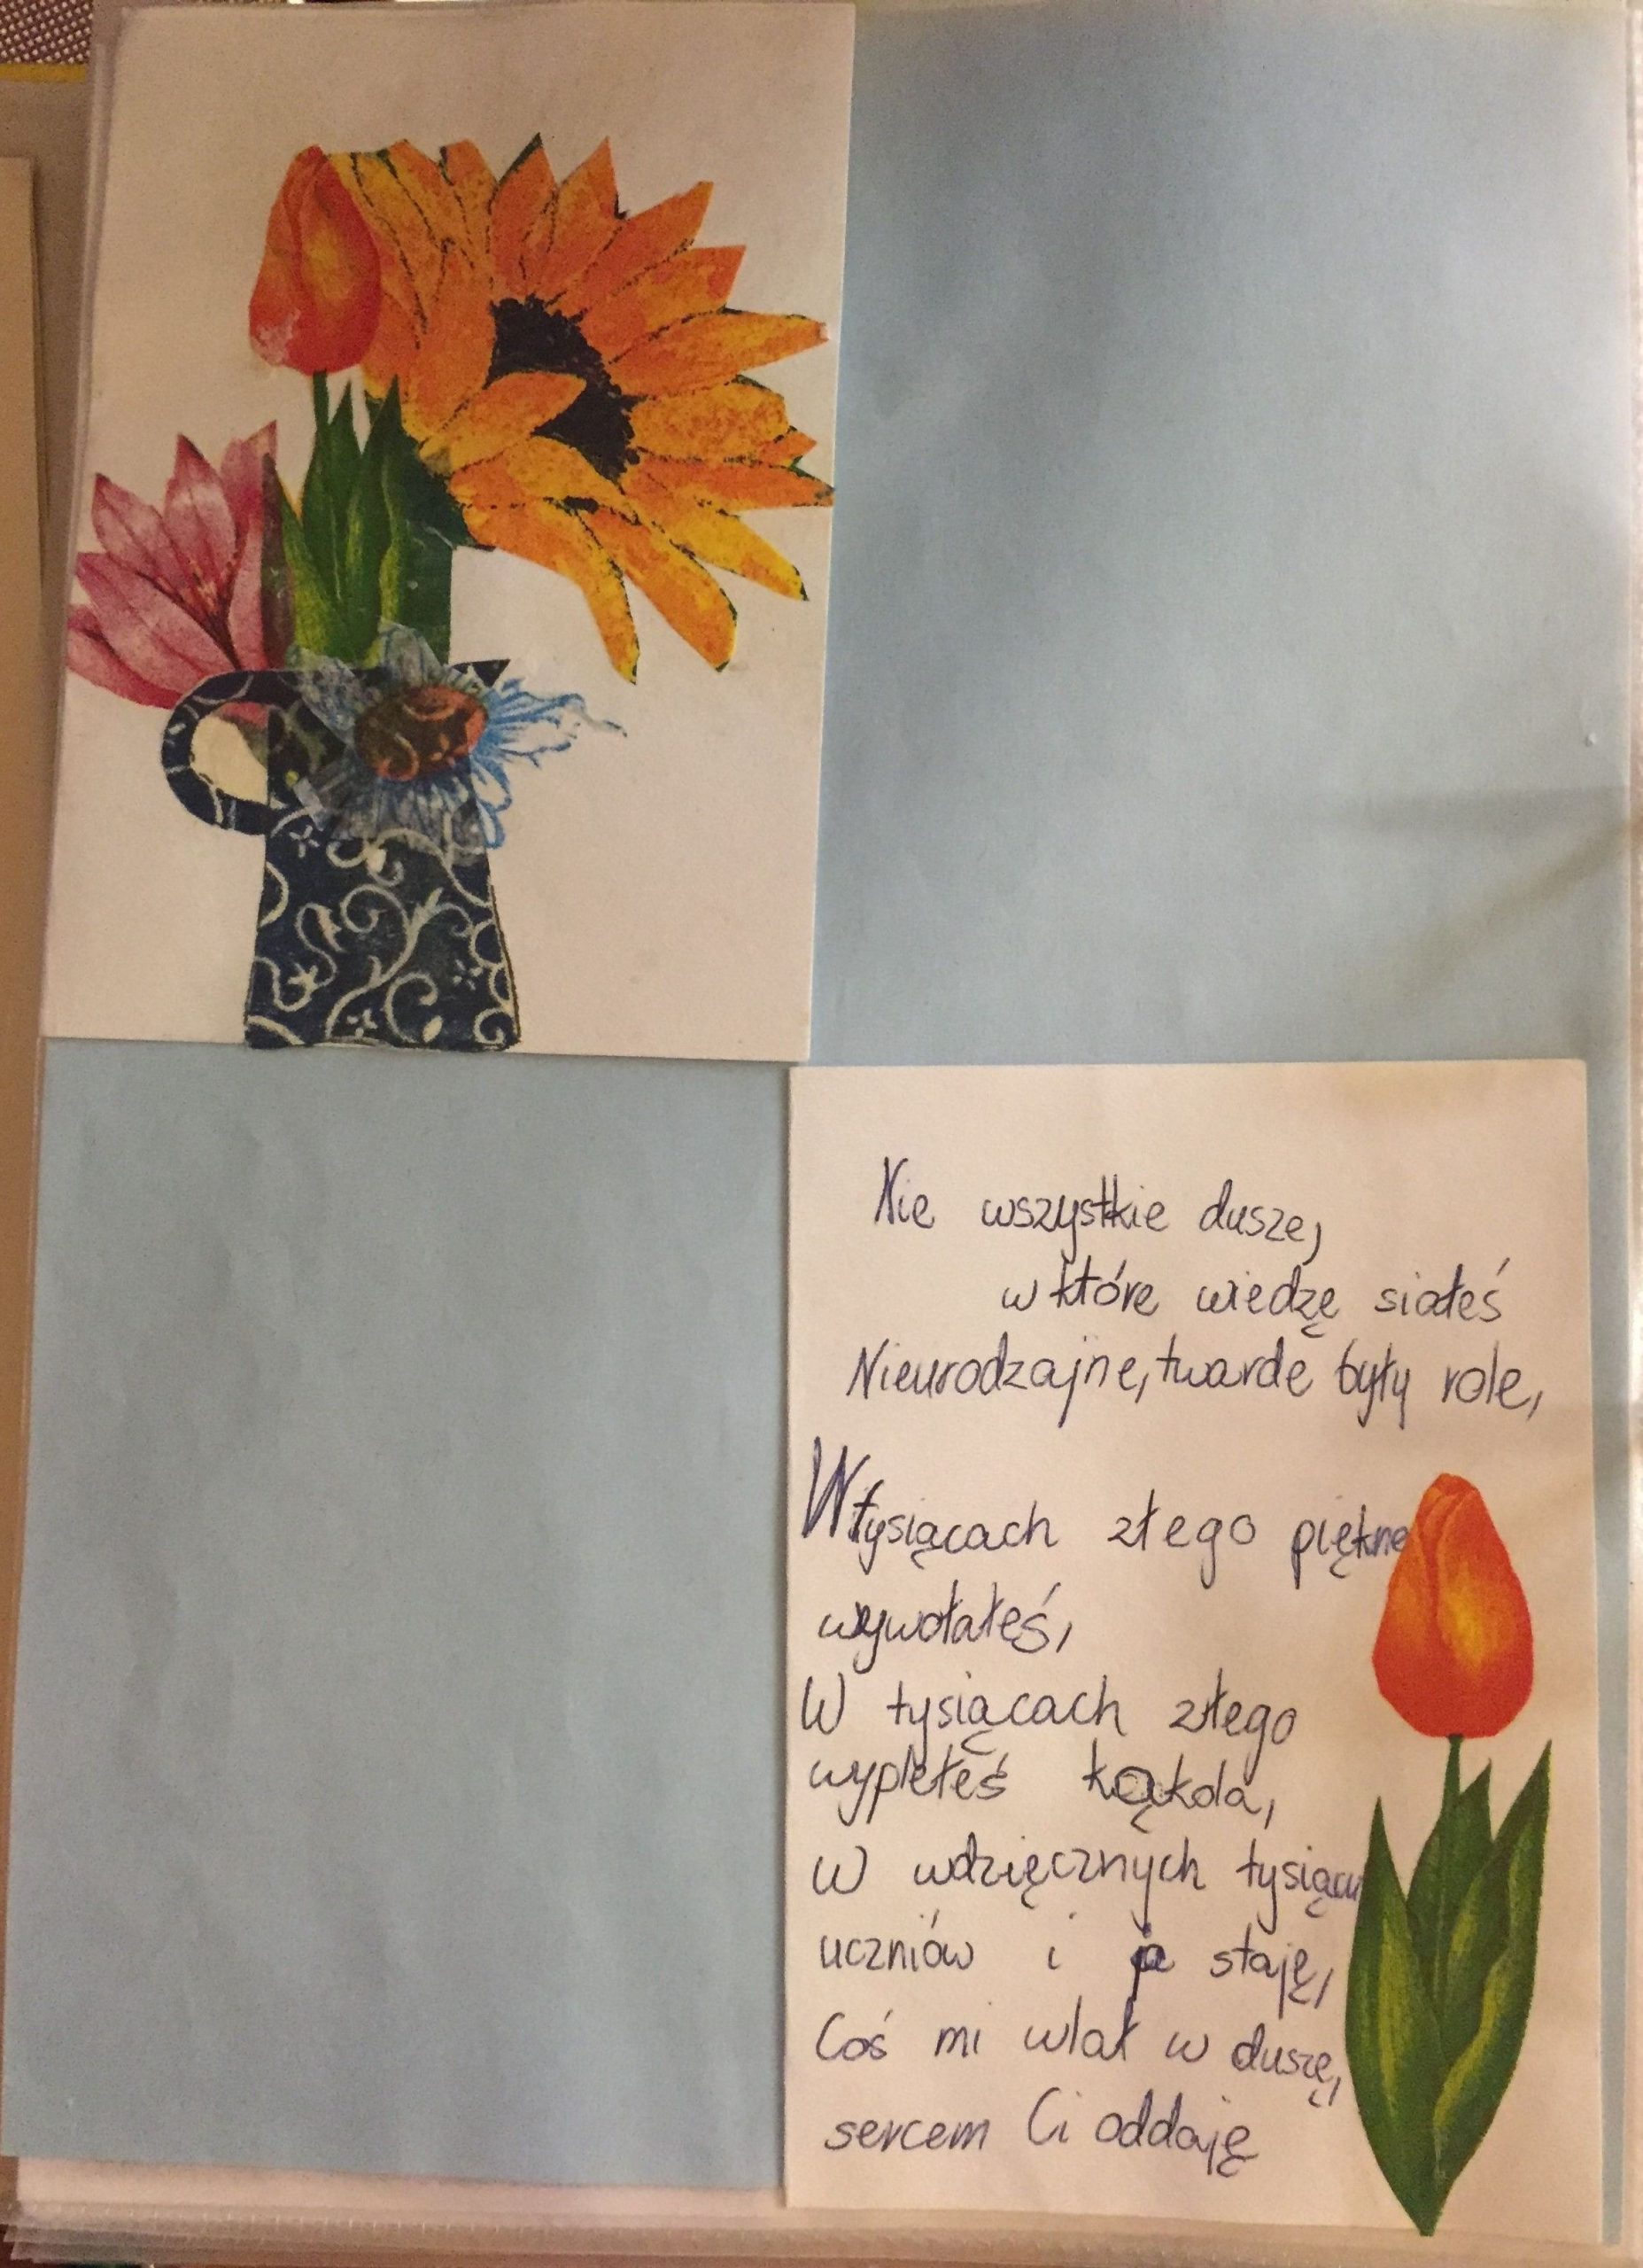 Nie wszystkie dusze,
w które wiedzę siałeś
Nieurodzajne, twarde były role,
W tysiącach złego piękne
wywołałeś,
W tysiącach złego
wypłełeś kąkola,
W wdzięcznych tysiącu
uczniów i ja staję,
Coś mi wlał w duszę,
sercem Ci oddaję